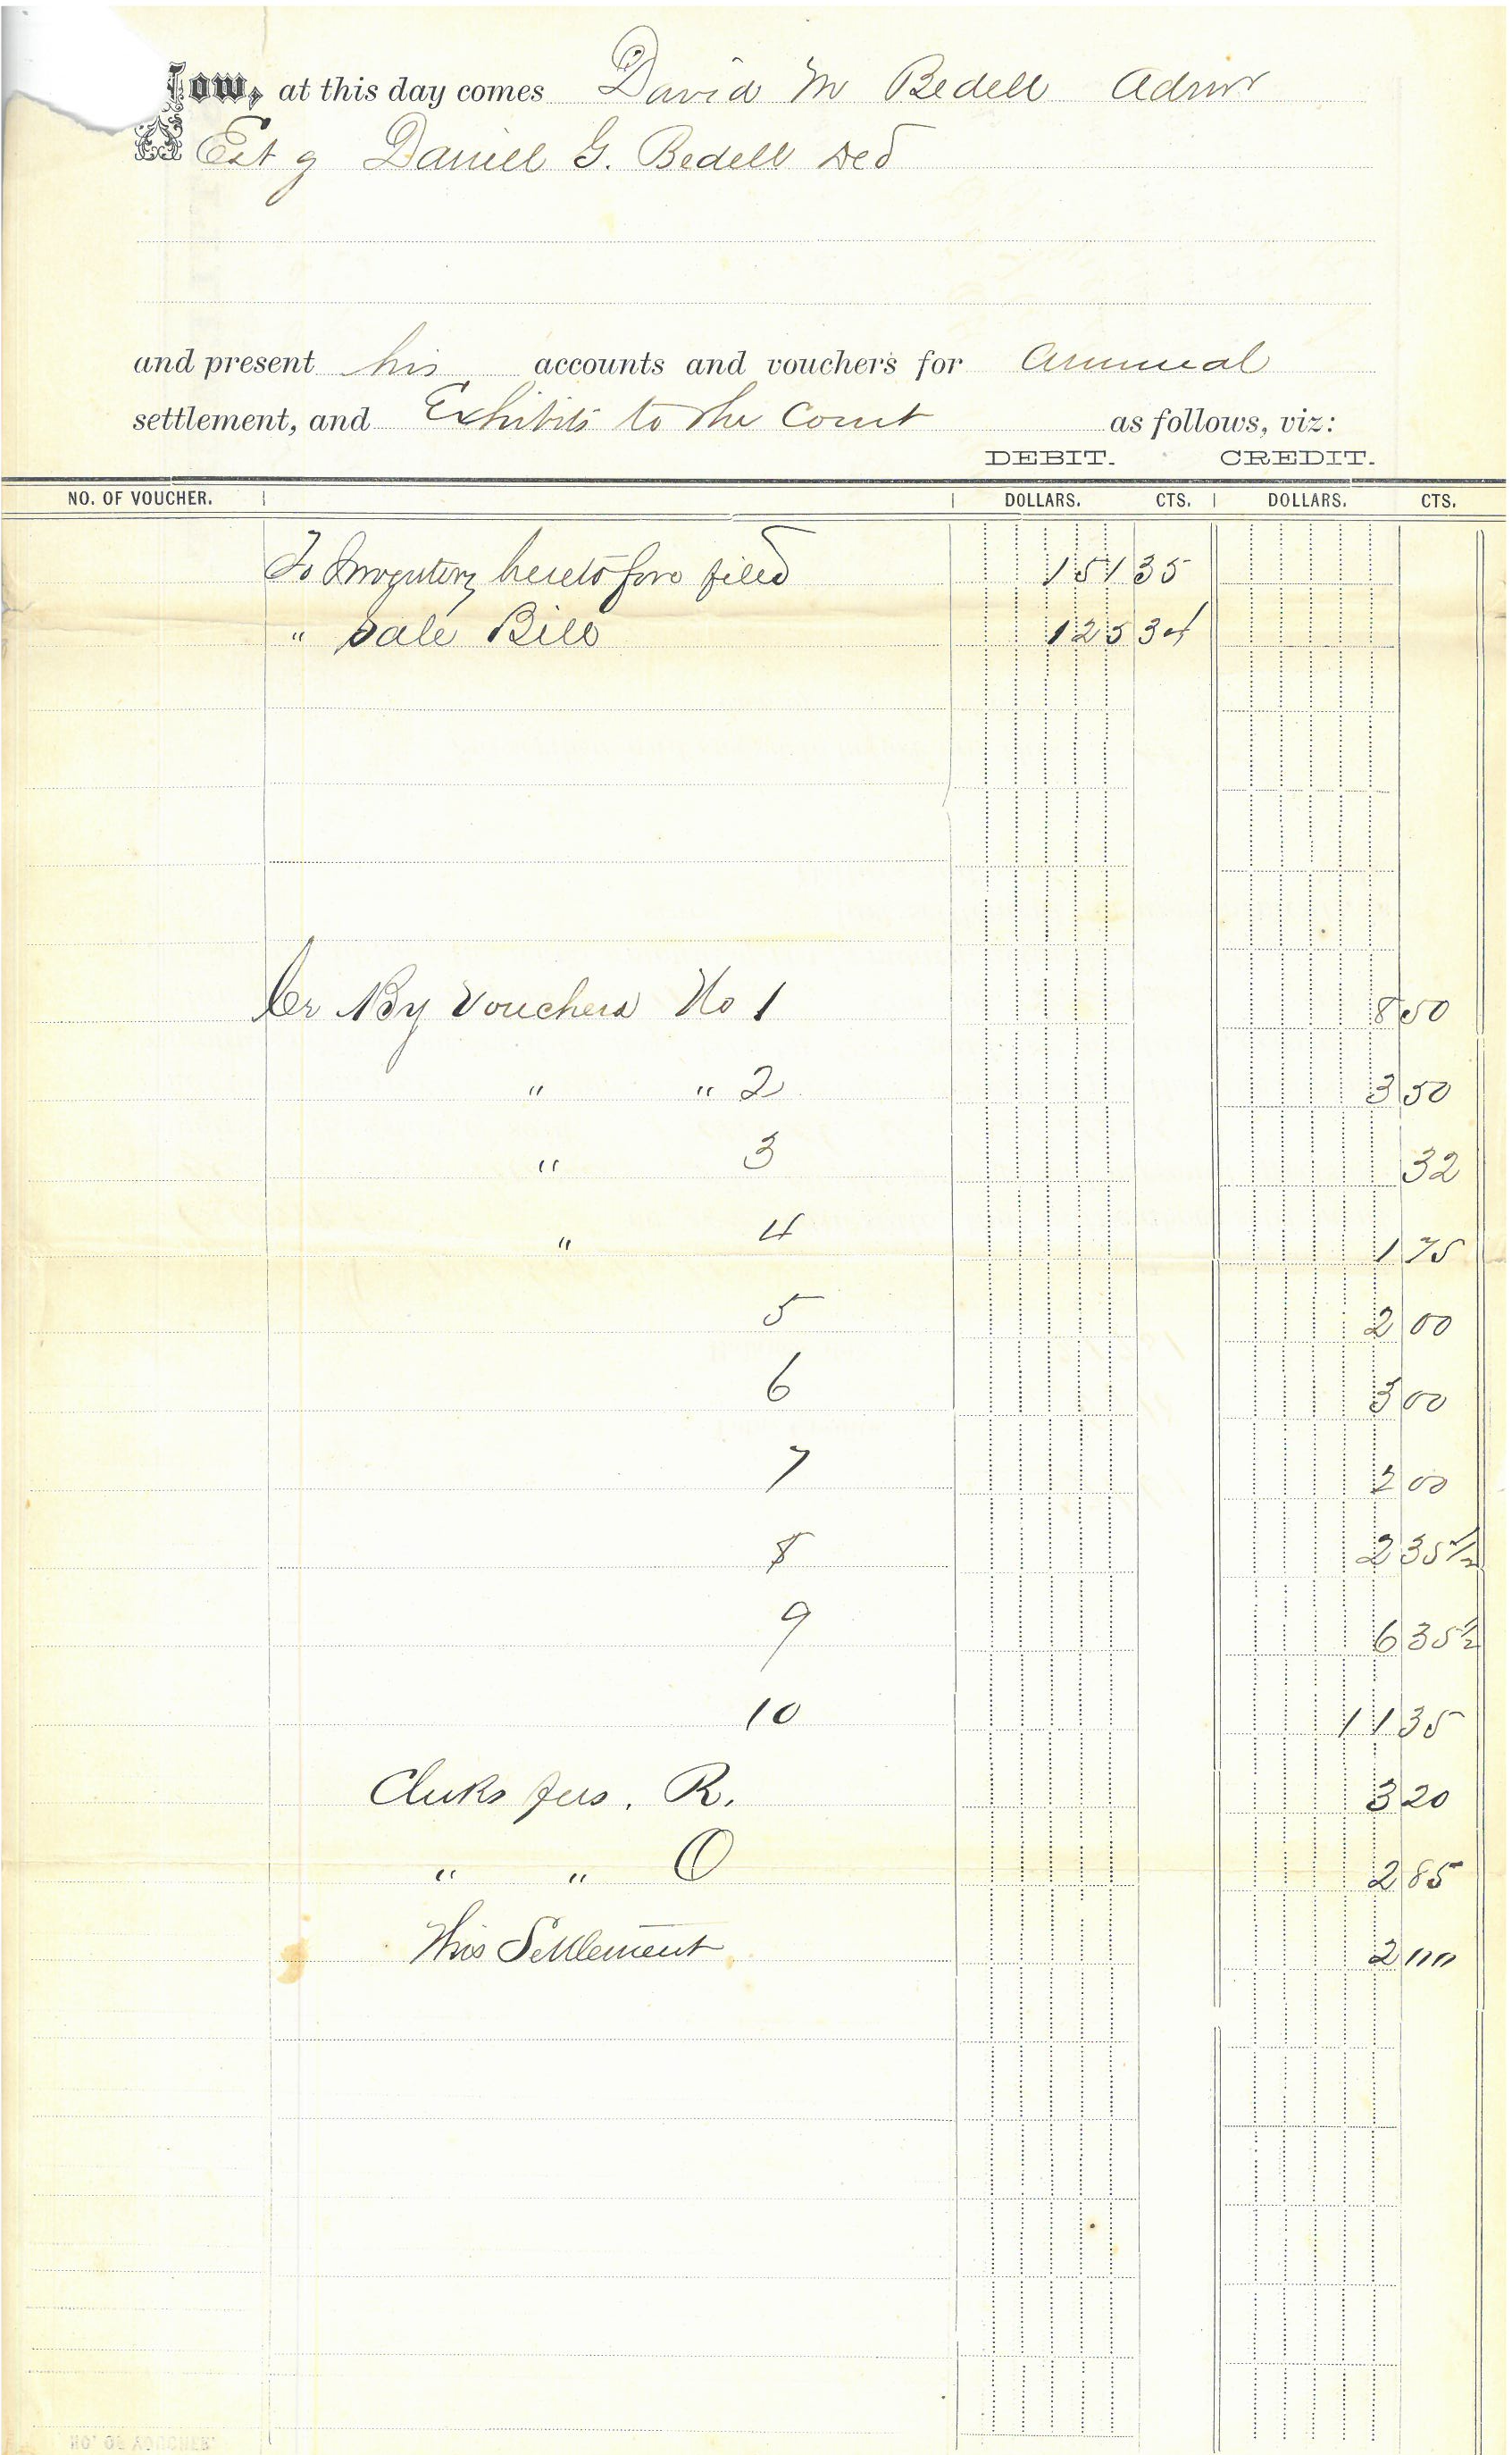 ow, at this day comes David M Bedell Admr
Est of Daniel G. Bedell Ded
and present his accounts and vouchers for Annual
settlement, and Exhibits to the Court as follows, viz:
DEBIT. CREDIT.
NO. OF VOUCHER. DOLLARS. CTS. DOLLARS. CTS.
To Inventory heretofore filed 151 35
" Sale Bill 125 34
Cr By Vouchers No 1 8 50
" " 2 3 50
" 3 32
" 4 1 75
5 2 00
6 3 00
7 2 00
8 2 35 1/2
9 6 35 1/2
10 11 35
Clerks fees. R. 3 20
" " O 2 85
This Settlement 2 00
NO. OF VOUCHER.